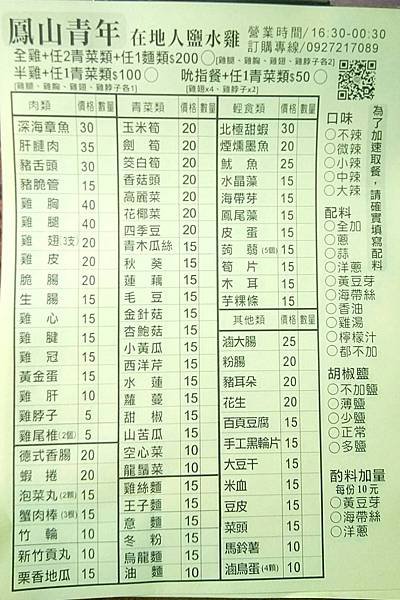 鳳山青年 在地人鹽水雞
營業時間/16:30-00:30
訂購專線/0927217089
全雞+任2青菜類+任1麵類$200○
(雞腿、雞胸、雞翅、雞脖子各2)
半雞+任1青菜類$100○
(雞腿、雞胸、雞翅、雞脖子各1)
吮指餐+任1青菜類$50○
(雞翅x4、雞脖子x2)
肉類 價格 數量
深海章魚 30
肝腱肉 35
豬舌頭 30
豬脆管 15
雞胸 40
雞腿 40
雞翅3支 20
雞皮 20
脆腸 20
生腸 20
雞心 15
雞腱 15
雞冠 15
黃金蛋 15
雞肝 10
雞脖子 5
雞尾椎(2個) 5
德式香腸 20
蝦捲 20
泡菜丸(2顆) 15
蟹肉棒(3根) 15
竹輪 10
新竹貢丸 10
栗香地瓜 15
青菜類 價格 數量
玉米筍 20
劍筍 20
筊白筍 20
香菇頭 20
高麗菜 20
花椰菜 20
四季豆 20
青木瓜絲 15
秋葵 15
蓮藕 15
毛豆 15
金針菇 15
杏鮑菇 15
小黃瓜 15
西洋芹 15
水蓮 15
蘿蔓 15
甜椒 15
山苦瓜 15
空心菜 10
龍鬚菜 10
雞絲麵 15
王子麵 15
意麵 15
冬粉 15
烏龍麵 15
油麵 10
輕食類 價格 數量
北極甜蝦 30
煙燻墨魚 20
魷魚 25
水晶藻 15
海帶芽 15
鳳尾藻 15
皮蛋 15
蒟蒻(5個) 15
筍片 15
木耳 15
芋粿條 15
其他類 價格 數量
滷大腸 25
粉腸 20
豬耳朵 20
花生 20
百頁豆腐 15
手工黑輪片 15
大豆干 15
米血 15
豆皮 15
菜頭 15
馬鈴薯 10
滷鳥蛋(4顆) 10
為了加速取餐，請確實填寫配料
口味
○不辣
○微辣
○小辣
○中辣
○大辣
配料
○全加
○蔥
○蒜
○洋蔥
○黃豆芽
○海帶絲
○香油
○雞湯
○檸檬汁
○都不加
胡椒鹽
○不加鹽
○薄鹽
○少鹽
○正常
○多鹽
酌料加量
每份10元
○黃豆芽
○海帶絲
○洋蔥